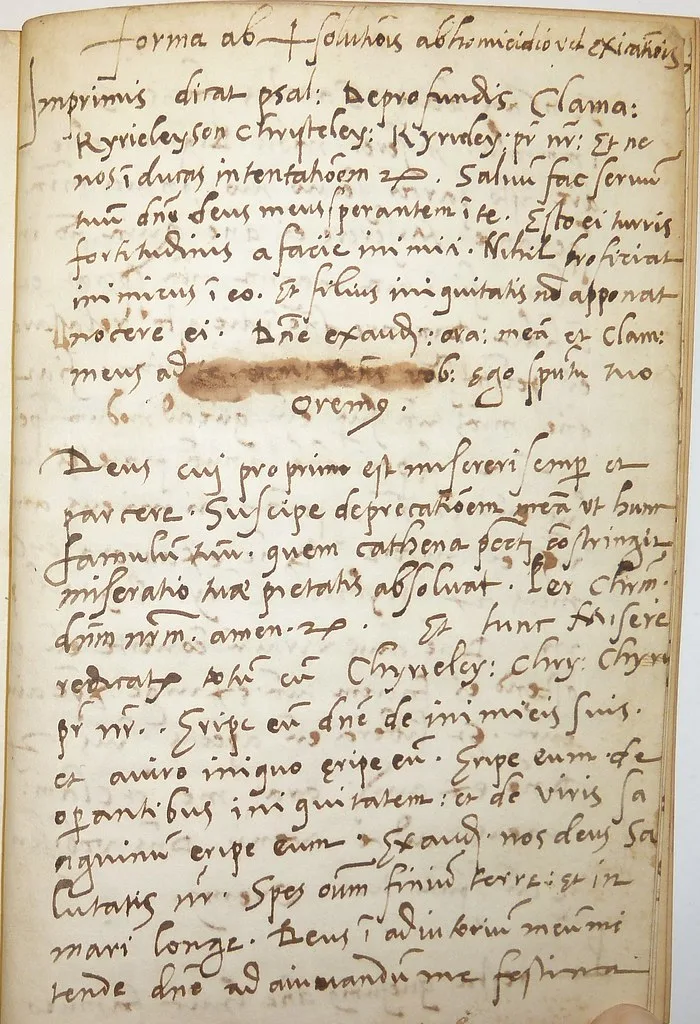 Forma ab + solutiõis ab homicidio vel exicatiõis
Inprimis dicat psal: De profundis Clama:
Kyrieleyson Christeley: Kyrieley: pr̃ nr̃: Et ne
nos ĩ ducas in tentatiõem. Salvũ fac servũ
tuũ dñe deus meus sperantem ĩ te. Esto ei turris
fortitudinis a facie inimici. Nihil proficiat
inimicus ĩ eo. Et filius iniquitatis nõ apponat
nocere ei. Dñe exaud: ora: meã et Clam:
meus ad vob: ego spũtu tuo
Orem9.
Deus cui proprium est misereri semp et
parcere. Suscipe deprecatiõem meã ut hunc
famulum tuũ. quem cathena pcti cõstringit
miseratio tuæ pietatis absolvat. Per Chrm̃.
dñm nrm̃. amen. Et tunc Misere
re dicat totũ cũ Chyrieley: Chry: Chyri
pr̃ nr̃. Eripe eũ dñe de inimicis suis.
et a viro iniquo eripe eũ. Eripe eum de
opantibus iniquitatem: et de viris sa
nguinũ eripe eum. Exaud nos deus Sa
lutatis nr̃. Spes oĩum finiũ terre: et in
mari longe. Deus ĩ adiutoriũ meũ in
tende dñe ad aiuvandũ me festina